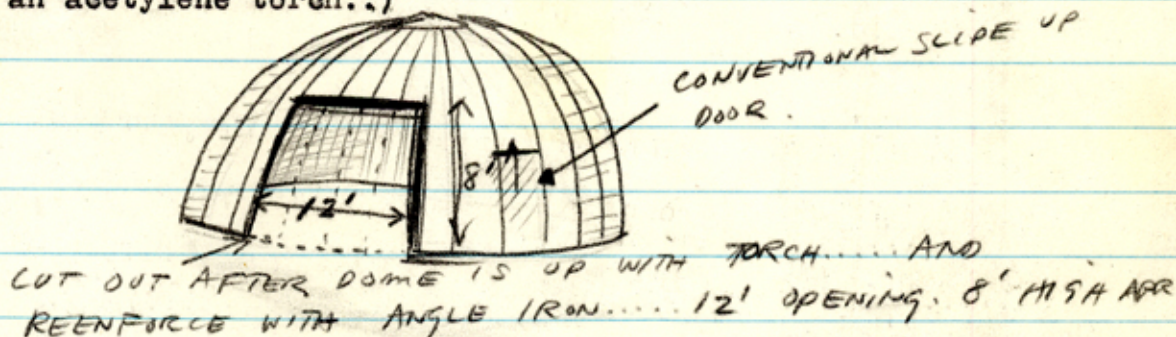 an acetylene torch..)
CONVENTIONAL SLIDE UP
DOOR.
8'
12'
CUT OUT AFTER DOME IS UP WITH TORCH..... AND
REENFORCE WITH ANGLE IRON..... 12' OPENING. 8' HIGH